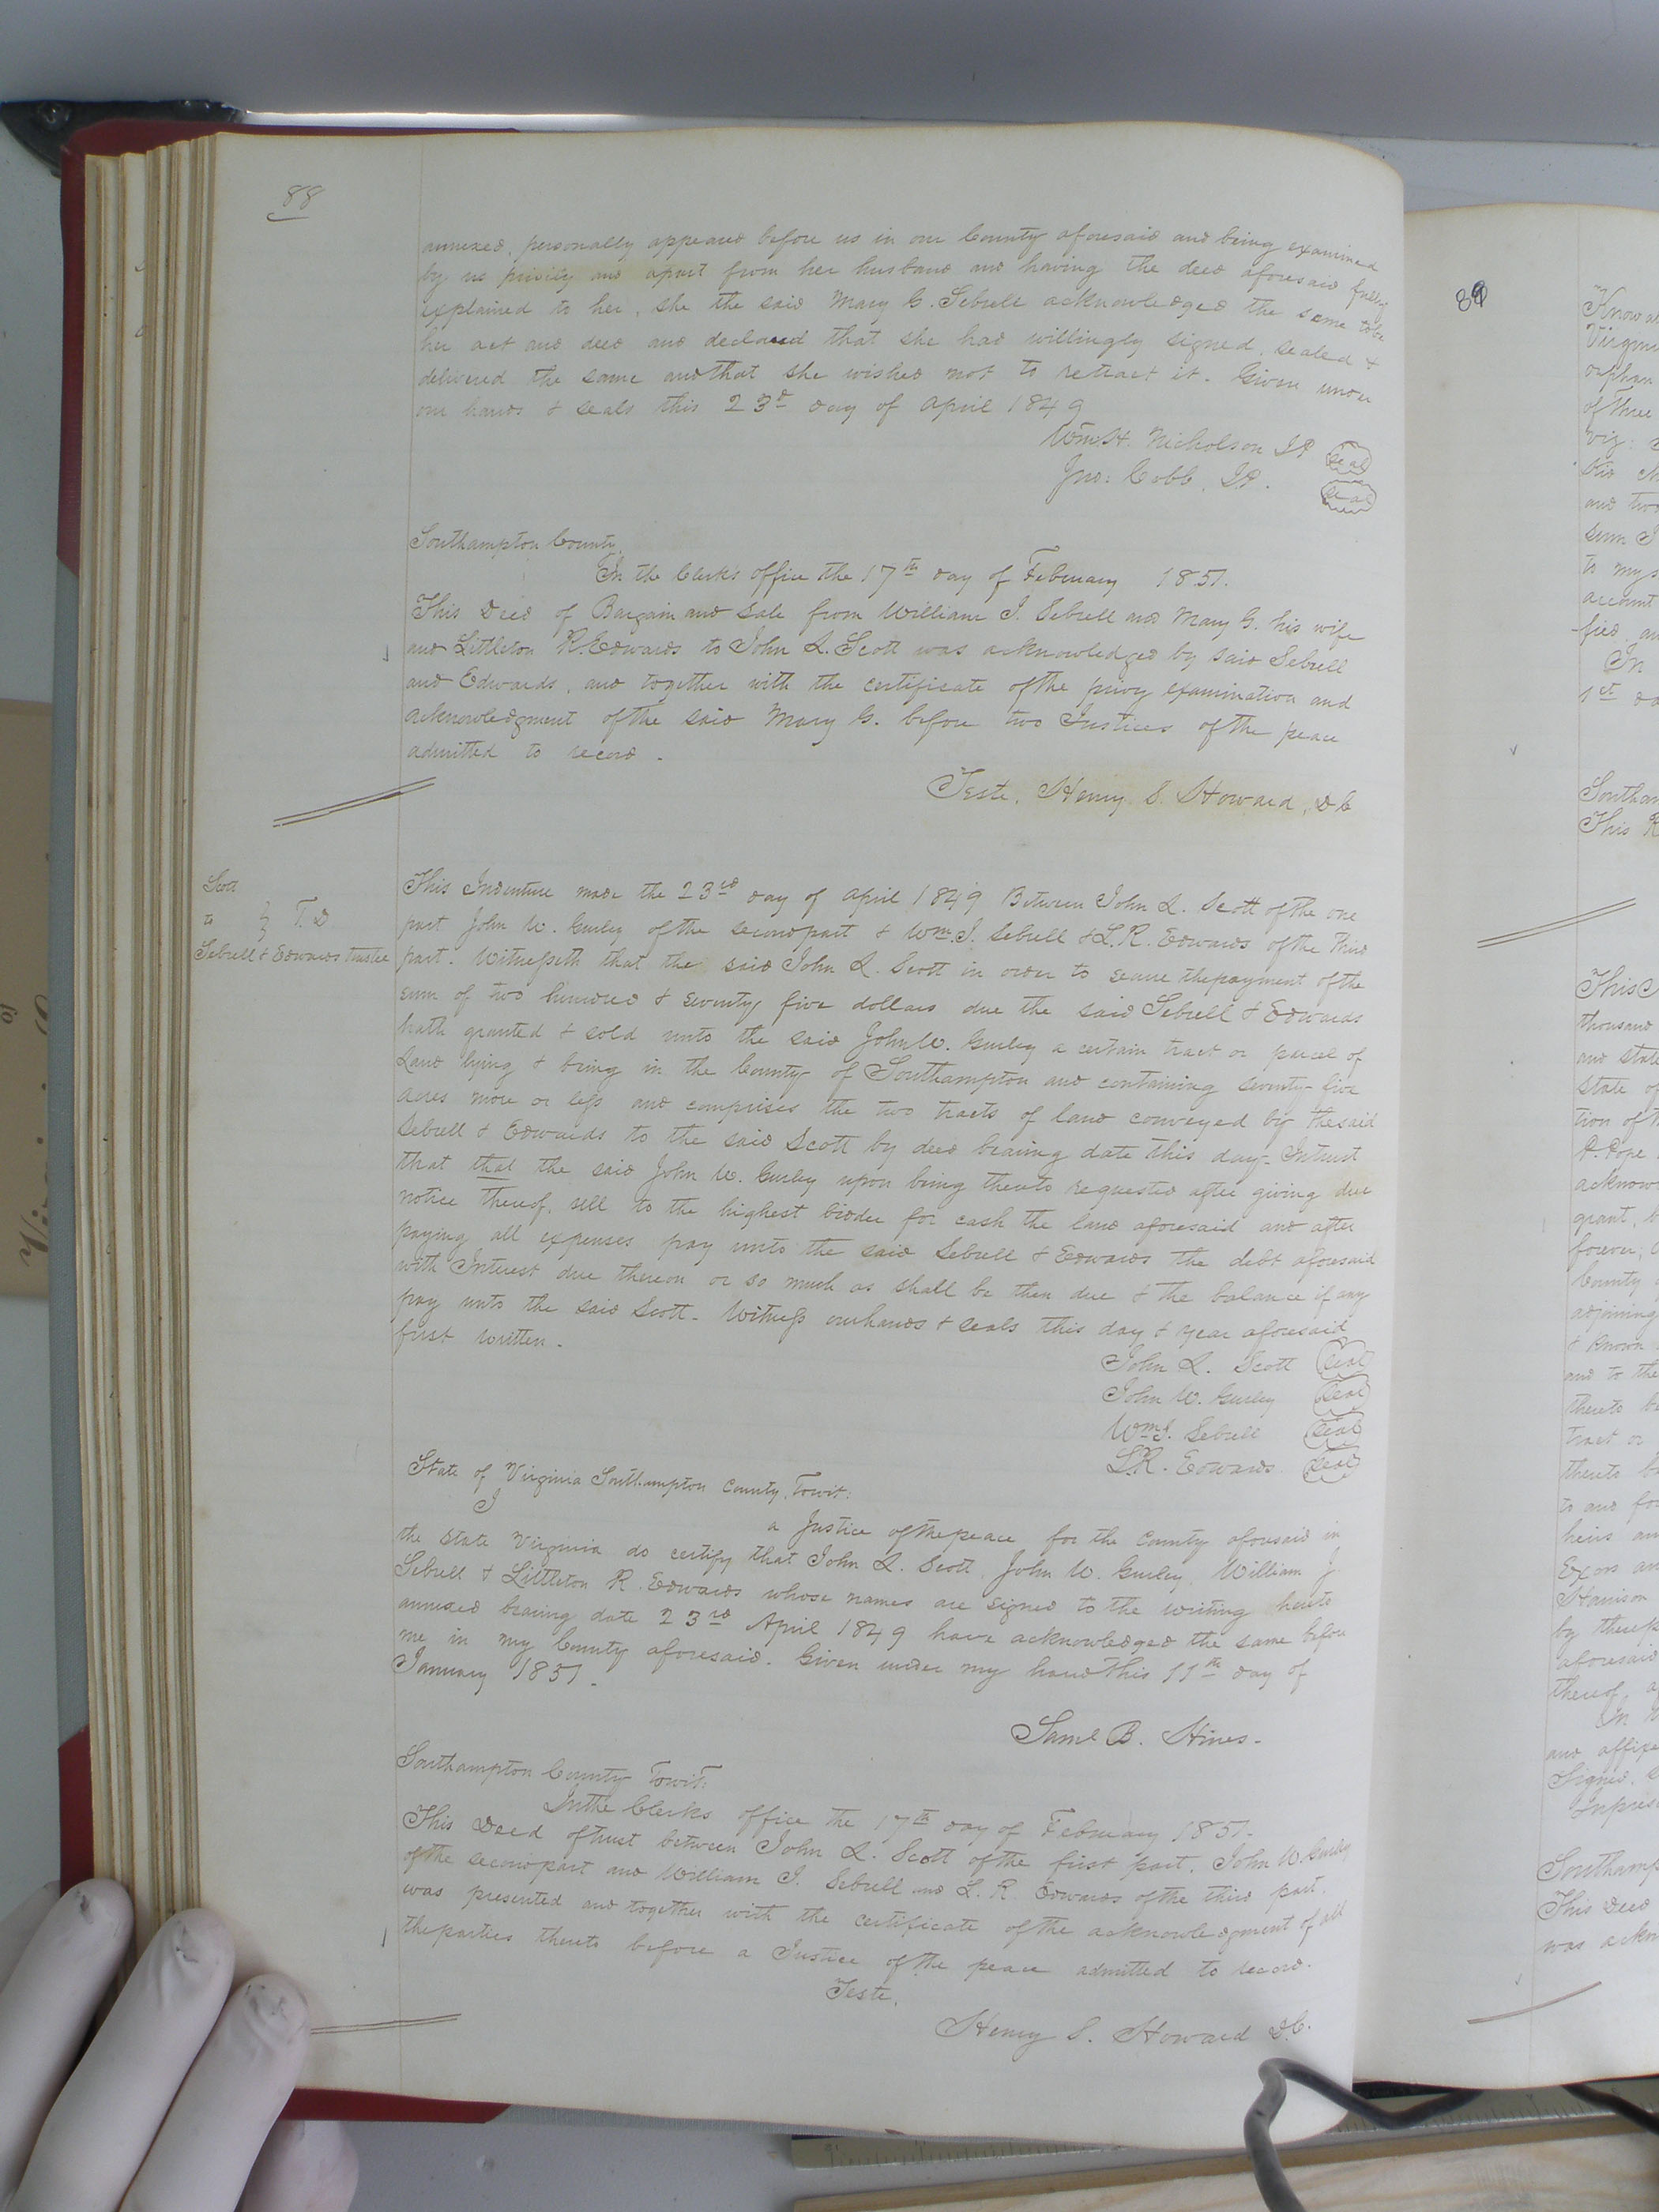 88
annexed, personally appeared before us in our County aforesaid and being examined
by us privily and apart from her husband and having the deed aforesaid fully
explained to her, she the said Mary G. Sebrell acknowledged the same to be
her act and deed and declared that she had willingly signed, sealed &
delivered the same and that she wished not to retract it. Given under
our hands & seals this 23d day of April 1849
Wm H. Nicholson JP seal
Jno: Cobb, J.P. seal
Southampton County,
In the Clerk's office the 17th day of February 1851.
This Deed of Bargain and sale from William J. Sebrell and Mary G. his wife
and Littleton R. Edwards to John L. Scott was acknowledged by said Sebrell
and Edwards, and together with the certificate of the privy examination and
acknowledgment of the said Mary G. before two Justices of the peace
admitted to record.
Teste, Henry S. Howard, DC
Scott
to } T. D
Sebrell & Edwards trustee
This Indenture made the 23rd day of April 1849 Between John L. Scott of the one
part John W. Gurley of the second part & Wm. J. Sebrell & L. R. Edwards of the Third
part. Witnesseth that the said John L. Scott in order to secure the payment of the
sum of two hundred & seventy five dollars due the said Sebrell & Edwards
hath granted & sold unto the said John W. Gurley a certain tract or parcel of
Land lying & being in the County of Southampton and containing seventy-five
acres more or less and comprises the two tracts of land conveyed by the said
Sebrell & Edwards to the said Scott by deed bearing date this day. Intrust
that that the said John W. Gurley upon being thereto requested after giving due
notice thereof, sell to the highest bidder for cash the land aforesaid and after
paying all expenses pay unto the said Sebrell & Edwards the debt aforesaid
with Interest due thereon or so much as shall be then due & the balance if any
pay unto the said Scott. Witness our hands & seals this day & year aforesaid
first written.
John L. Scott seal
John W. Gurley seal
Wm J. Sebrell seal
L.R. Edwards seal
State of Virginia Southampton County, Towit:
I a Justice of the peace for the County aforesaid in
the State Virginia do certify that John L. Scott, John W. Gurley, William J.
Sebrell & Littleton R. Edwards whose names are signed to the writing hereto
annexed bearing date 23rd April 1849 have acknowledged the same before
me in my County aforesaid. Given under my hand this 11th day of
January 1851.
Saml B. Hines.
Southampton County Towit:
In the Clerks office the 17th day of February 1851.
This Deed of trust between John L. Scott of the first part, John W. Gurley
of the second part and William J. Sebrell and L. R. Edwards of the third part.
was presented and together with the certificate of the acknowledgment of all
the parties thereto before a Justice of the peace admitted to record.
Teste,
Henry S. Howard D.C.
89
Know
Virginia
orphan
of three
viz:
and two
sum
to my
account
In
1st
Southam
This
This
thousand
and state
state of
tion of
P. Pope
acknow
grant,
forever,
County
adjoining
& known
and to the
thereto be
tract or
thereto
to and for
heirs
Exors and
Harrison
by these
aforesaid
thereof,
In
and affixed
Signed,
Southamp
This Deed
was ackn